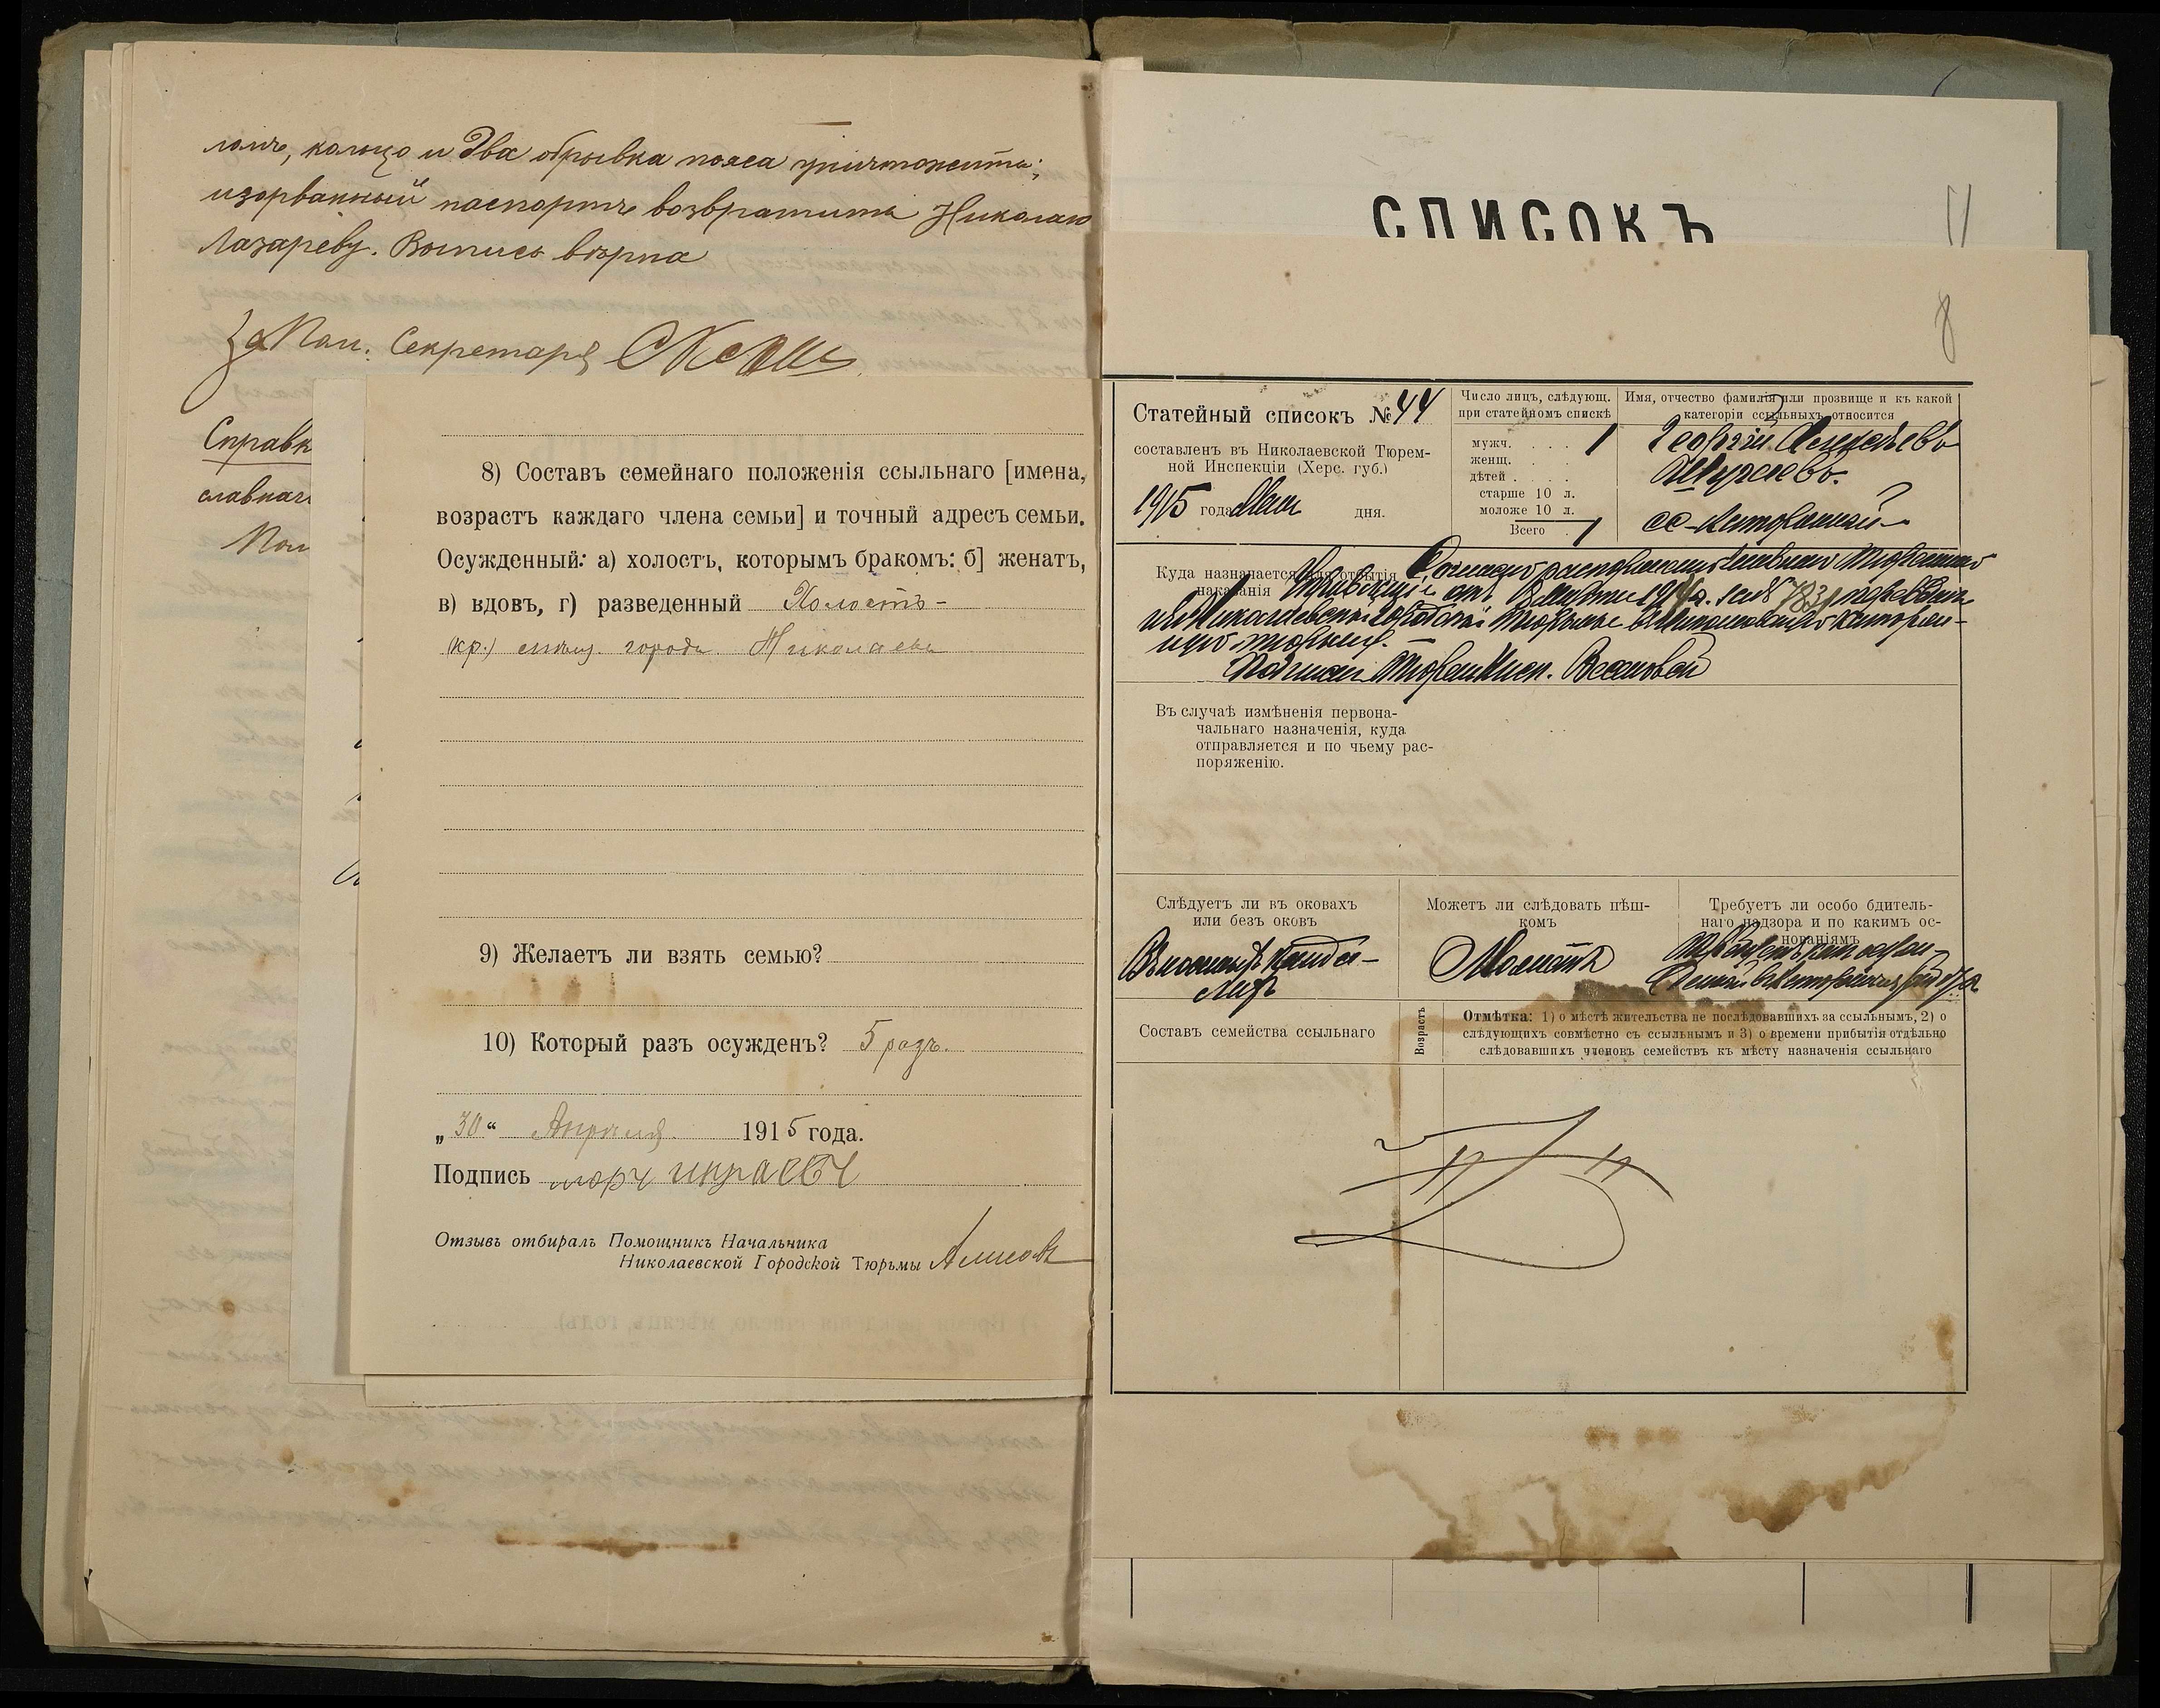 ломъ, кольцо и два обрывка пояса уничтожить;
изорванный паспортъ возвратить Николаю
Лазареву. Выпись вѣрна
За Пом. Секретаря
Справк
славнаг
Пом
8) Составъ семейнаго положенія ссыльнаго [имена,
возрастъ каждаго члена семьи] и точный адресъ семьи.
Осужденный: а) холостъ, которымъ бракомъ: б] женатъ,
в) вдовъ, г) разведенный Холостъ -
(кр.) города Николаева
9) Желаетъ ли взять семью?
10) Который разъ осужденъ? 5 разъ.
„30“ Апрѣля 1915 года.
Подпись
Отзывъ отбиралъ Помощникъ Начальника
Николаевской Городской Тюрьмы
СПИСОКЪ
11
8
Статейный списокъ № 44
составленъ въ Николаевской Тюрем-
ной Инспекціи (Херс. губ.)
1915 года Мая дня.
Число лицъ, слѣдующ.
при статейномъ спискѣ
мужч. . . . . 1
женщ. . .
дѣтей . . . .
старше 10 л.
моложе 10 л.
Всего . 1
Имя, отчество фамилія или прозвище и къ какой
категоріи ссыльныхъ относится
Георгій
с-каторжный
Куда назначается для отбытія
наказанія
Согласно распоряженія Главнаго Тюремнаго
Управленія отъ 1914 г. за №
Николаевской городской тюрьмы въ Николаевскую каторж-
ную тюрьму.
Въ случаѣ измѣненія первона-
чальнаго назначенія, куда
отправляется и по чьему рас-
поряженію.
Слѣдуетъ ли въ оковахъ
или безъ оковъ
Въ ножныхъ канда-
лахъ
Можетъ ли слѣдовать пѣш-
комъ
Можетъ
Требуетъ ли особо бдитель-
наго надзора и по какимъ ос-
нованіямъ
Составъ семейства ссыльнаго
Возрастъ
Отмѣтка: 1) о мѣстѣ жительства не послѣдовавшихъ за ссыльнымъ, 2) о
слѣдующихъ совмѣстно съ ссыльнымъ и 3) о времени прибытія отдѣльно
слѣдовавшихъ членовъ семействъ къ мѣсту назначенія ссыльнаго